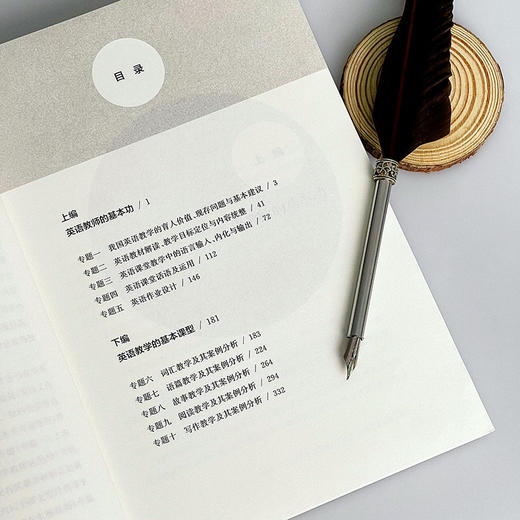 目录
上编
英语教师的基本功 / 1
专题一 我国英语教学的育人价值、现存问题与基本建议 / 3
专题二 英语教材解读、教学目标定位与内容统整 / 41
专题三 英语课堂教学中的语言输入、内化与输出 / 72
专题四 英语课堂话语及运用 / 112
专题五 英语作业设计 / 146
下编
英语教学的基本课型 / 181
专题六 词汇教学及其案例分析 / 183
专题七 语篇教学及其案例分析 / 224
专题八 故事教学及其案例分析 / 264
专题九 阅读教学及其案例分析 / 294
专题十 写作教学及其案例分析 / 332